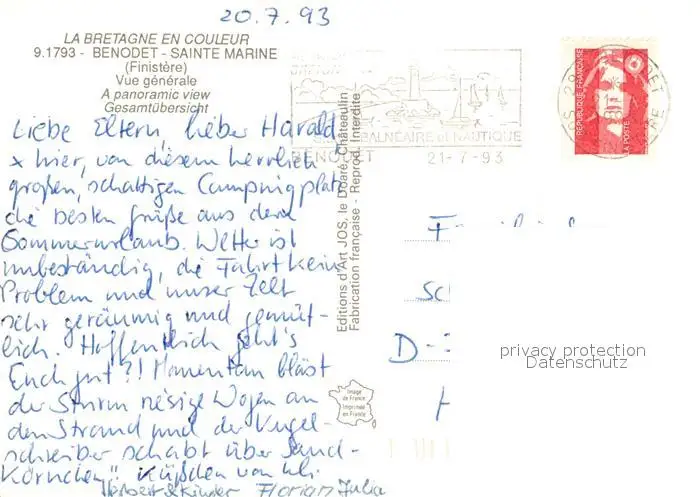 20.7.93
LA BRETAGNE EN COULEUR
9.1793 - BENODET - SAINTE MARINE
(Finistère)
Vue générale
A panoramic view
Gesamtübersicht
Liebe Eltern, lieber Harald
x hier, von diesem herrlich
großen, schattigen Campingplatz
die besten Grüße aus dem
Sommerurlaub. Wetter ist
unbeständig, die Fahrt kein
Problem und unser Zelt
sehr geräumig und gemüt-
lich. Hoffentlich geht's
Euch gut?! Momentan bläst
der Sturm riesige Wogen an
den Strand und der Kugel-
schreiber schabt über Sand-
Körnchen". Küßchen von
Herbert & Kinder Florian Julia
Editions d'Art JOS, le Doaré, Châteaulin
Fabrication française - Reprod. Interdite
BALNEAIRE et NAUTIQUE
BENODET 21-7-93
REPUBLIQUE FRANÇAISE
LA POSTE
F
Sc
D-
privacy protection
Datenschutz
Image
de France
Imprimée
en France